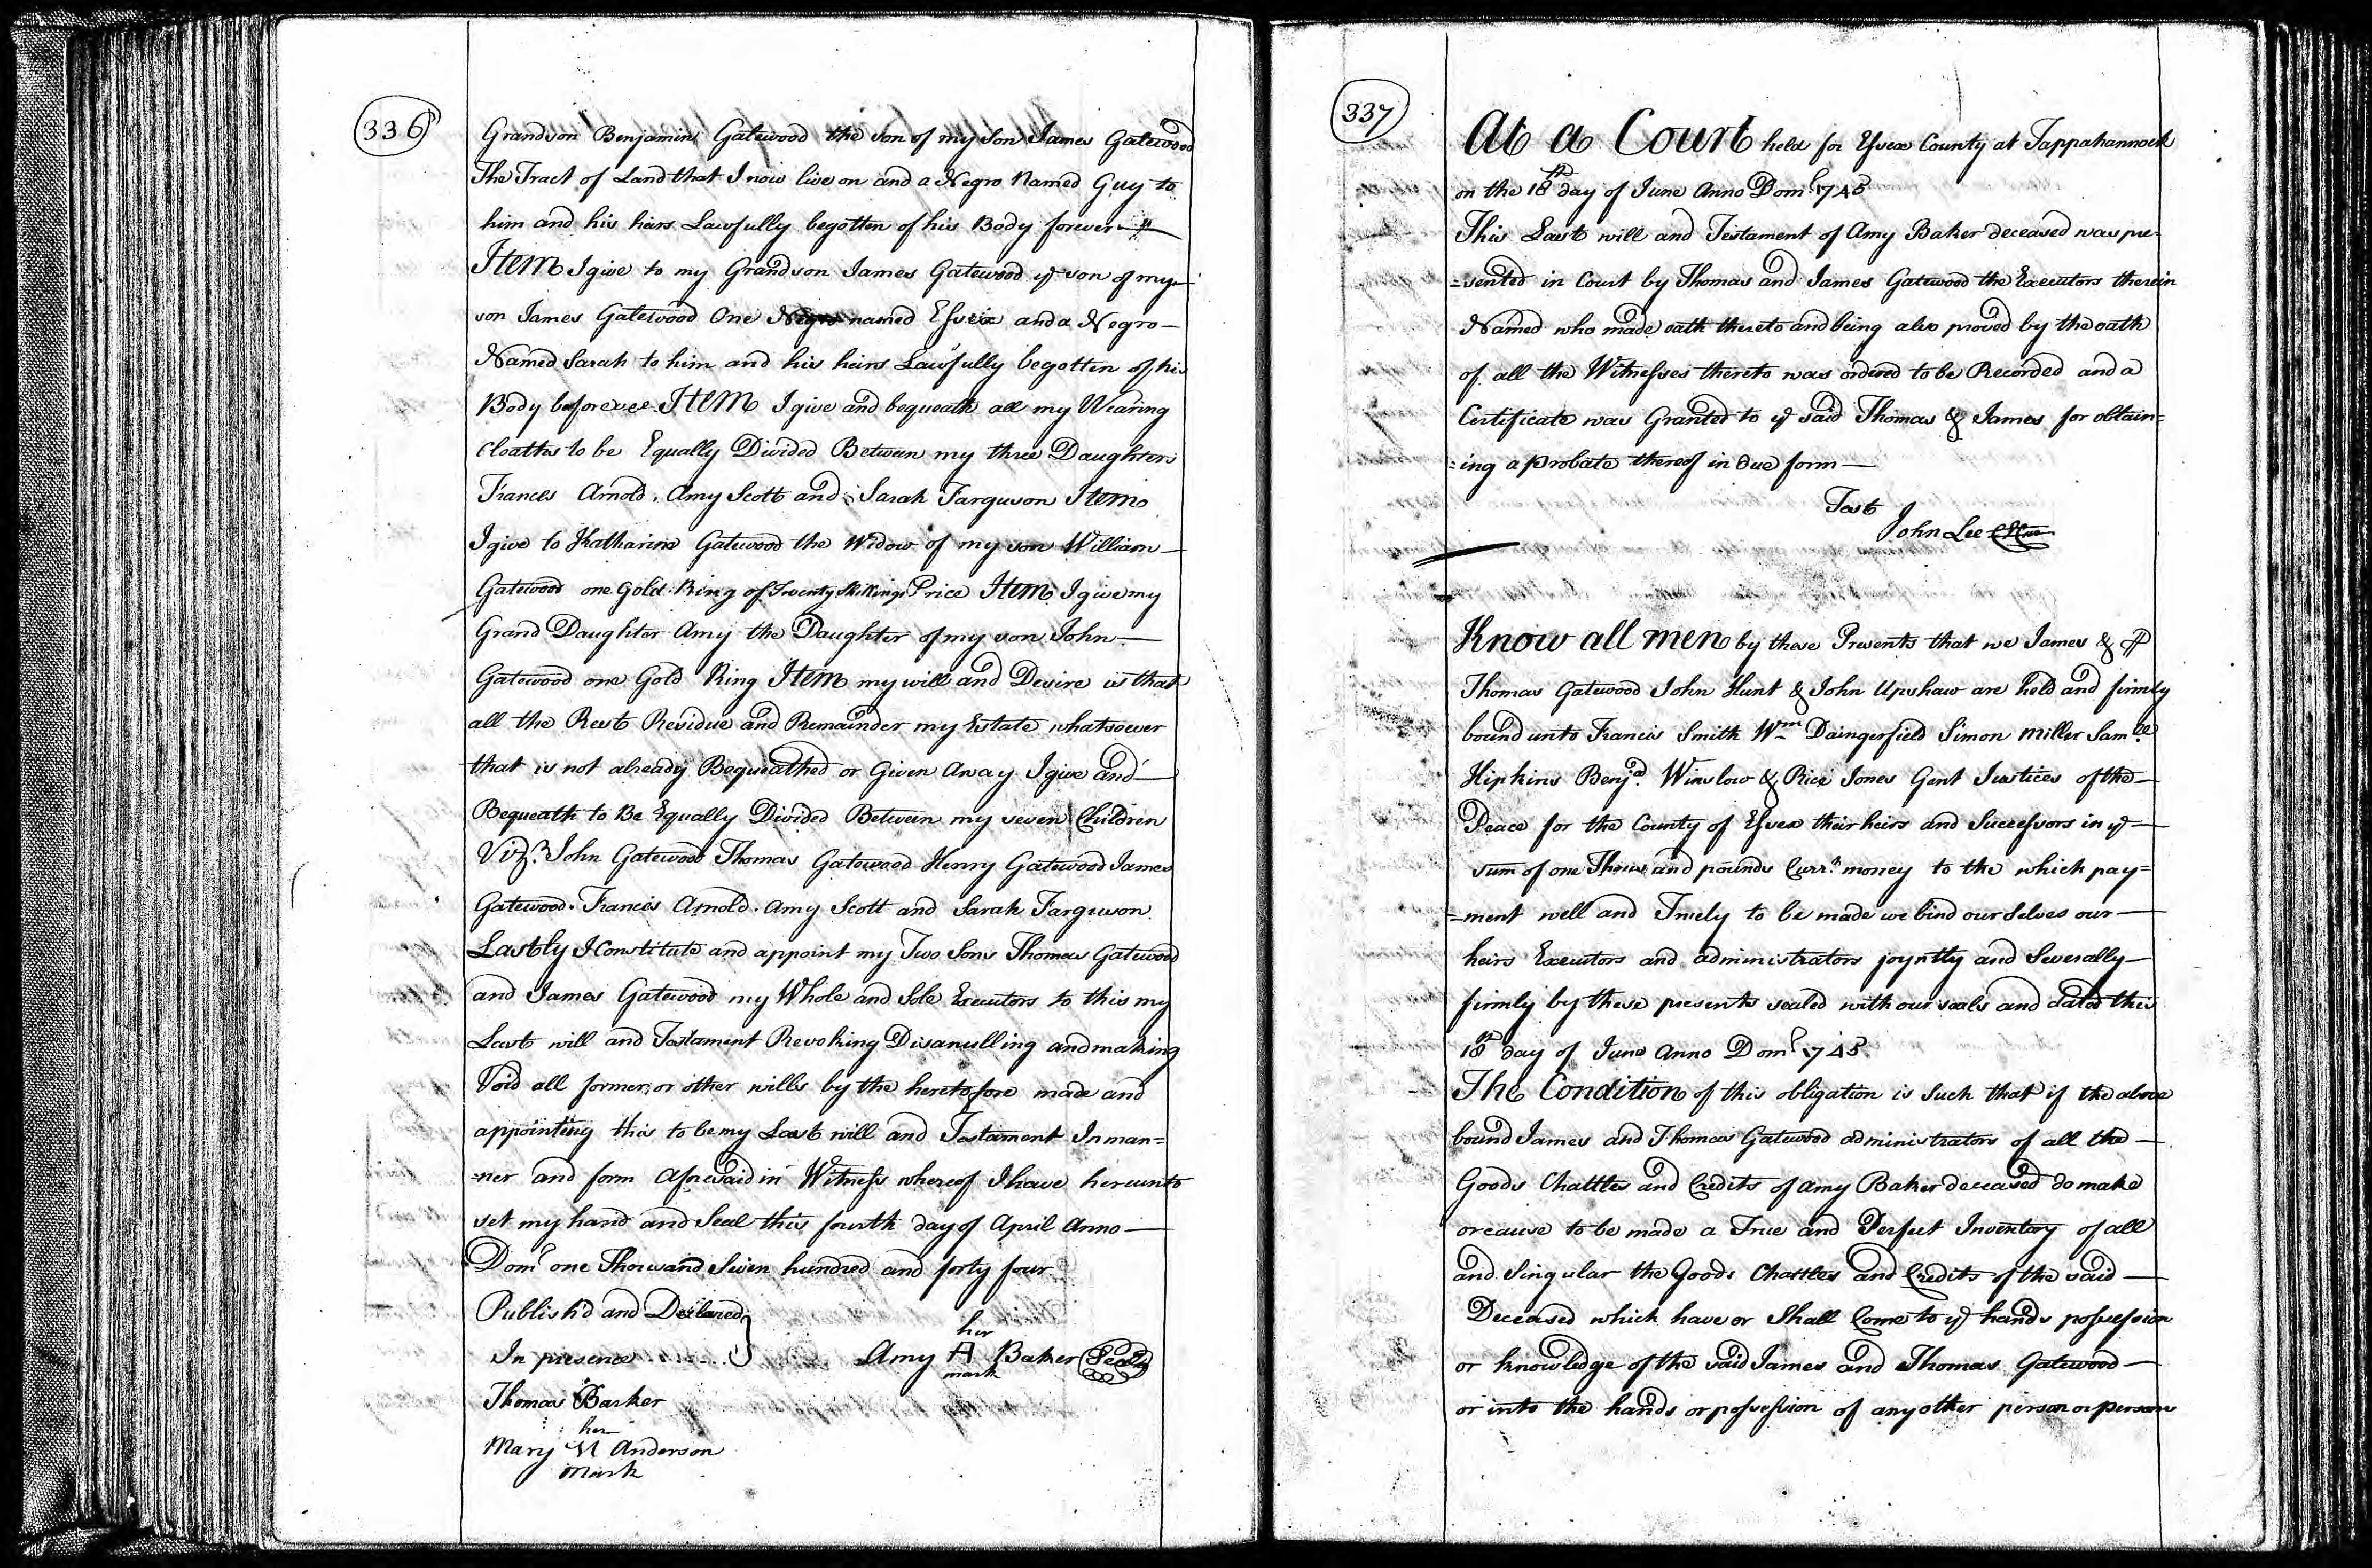 336
Grandson Benjamin Gatewood the son of my son James Gatewood
The Tract of Land that I now live on and a Negro Named Guy to
him and his heirs Lawfully begotten of his Body forever
Item I give to my Grandson James Gatewood ye son of my
son James Gatewood One Negro named Essex and a Negro
Named Sarah to him and his heirs Lawfully begotten of his
Body beforever Item I give and bequeath all my Wearing
Cloaths to be Equally Divided Between my three Daughters
Frances Arnold, Amy Scott and Sarah Farguson Item
I give to Katharine Gatewood the Widow of my son William
Gatewood one Gold Ring of Twenty Shillings Price Item I give my
Grand Daughter Amy the Daughter of my son John
Gatewood one Gold Ring Item my will and Desire is that
all the Rest Residue and Remainder my Estate whatsoever
that is not already Bequeathed or Given Away I give and
Bequeath to Be Equally Divided Between my seven Children
Vizt. John Gatewood Thomas Gatewood Henry Gatewood James
Gatewood. Frances Arnold. Amy Scott and Sarah Farguson.
Lastly I Constitute and appoint my Two Sons Thomas Gatewood
and James Gatewood my Whole and Sole Executors to this my
Last will and Testament Revoking Disanulling and making
Void all former or other wills by the heretofore made and
appointing this to be my Last will and Testament In man=
=ner and form Aforesaid in Witness whereof I have hereunto
set my hand and Seal this fourth day of April Anno
Dom. one Thousand Seven hundred and forty four
Publish'd and Declared
In presence
her
Amy A Baker Seal
mark
Thomas Barker
her
Mary M Anderson
mark
337
At a Court held for Essex County at Tappahannock
on the 18th day of June Anno Dom. 1745
This Last will and Testament of Amy Baker deceased was pre-
=sented in Court by Thomas and James Gatewood the Executors therein
Named who made oath thereto and being also proved by the oath
of all the Witnesses thereto was ordered to be Recorded and a
Certificate was Granted to ye said Thomas & James for obtain=
=ing a Probate thereof in due form
Test
John Lee CCur
Know all men by these Presents that we James &
Thomas Gatewood John Hunt & John Upshaw are held and firmly
bound unto Francis Smith Wm Daingerfield Simon Miller Saml
Hipkins Benja. Winslow & Rice Jones Gent Justices of the
Peace for the County of Essex their heirs and Successors in ye
sum of one Thousand pounds Curr.t money to the which pay=
=ment well and Truely to be made we bind our Selves our
heirs Executors and administrators joyntly and Severally
firmly by these presents sealed with our seals and dated this
18th day of June Anno Dom. 1745.
The Condition of this obligation is Such that if the above
bound James and Thomas Gatewood administrators of all the
Goods Chattles and Credits of Amy Baker deceased do make
or cause to be made a True and Perfect Inventory of all
and Singular the Goods Chattles and Credits of the said
Deceased which have or Shall Come to ye hands possession
or knowledge of the said James and Thomas Gatewood
or into the hands or possession of any other person or persons